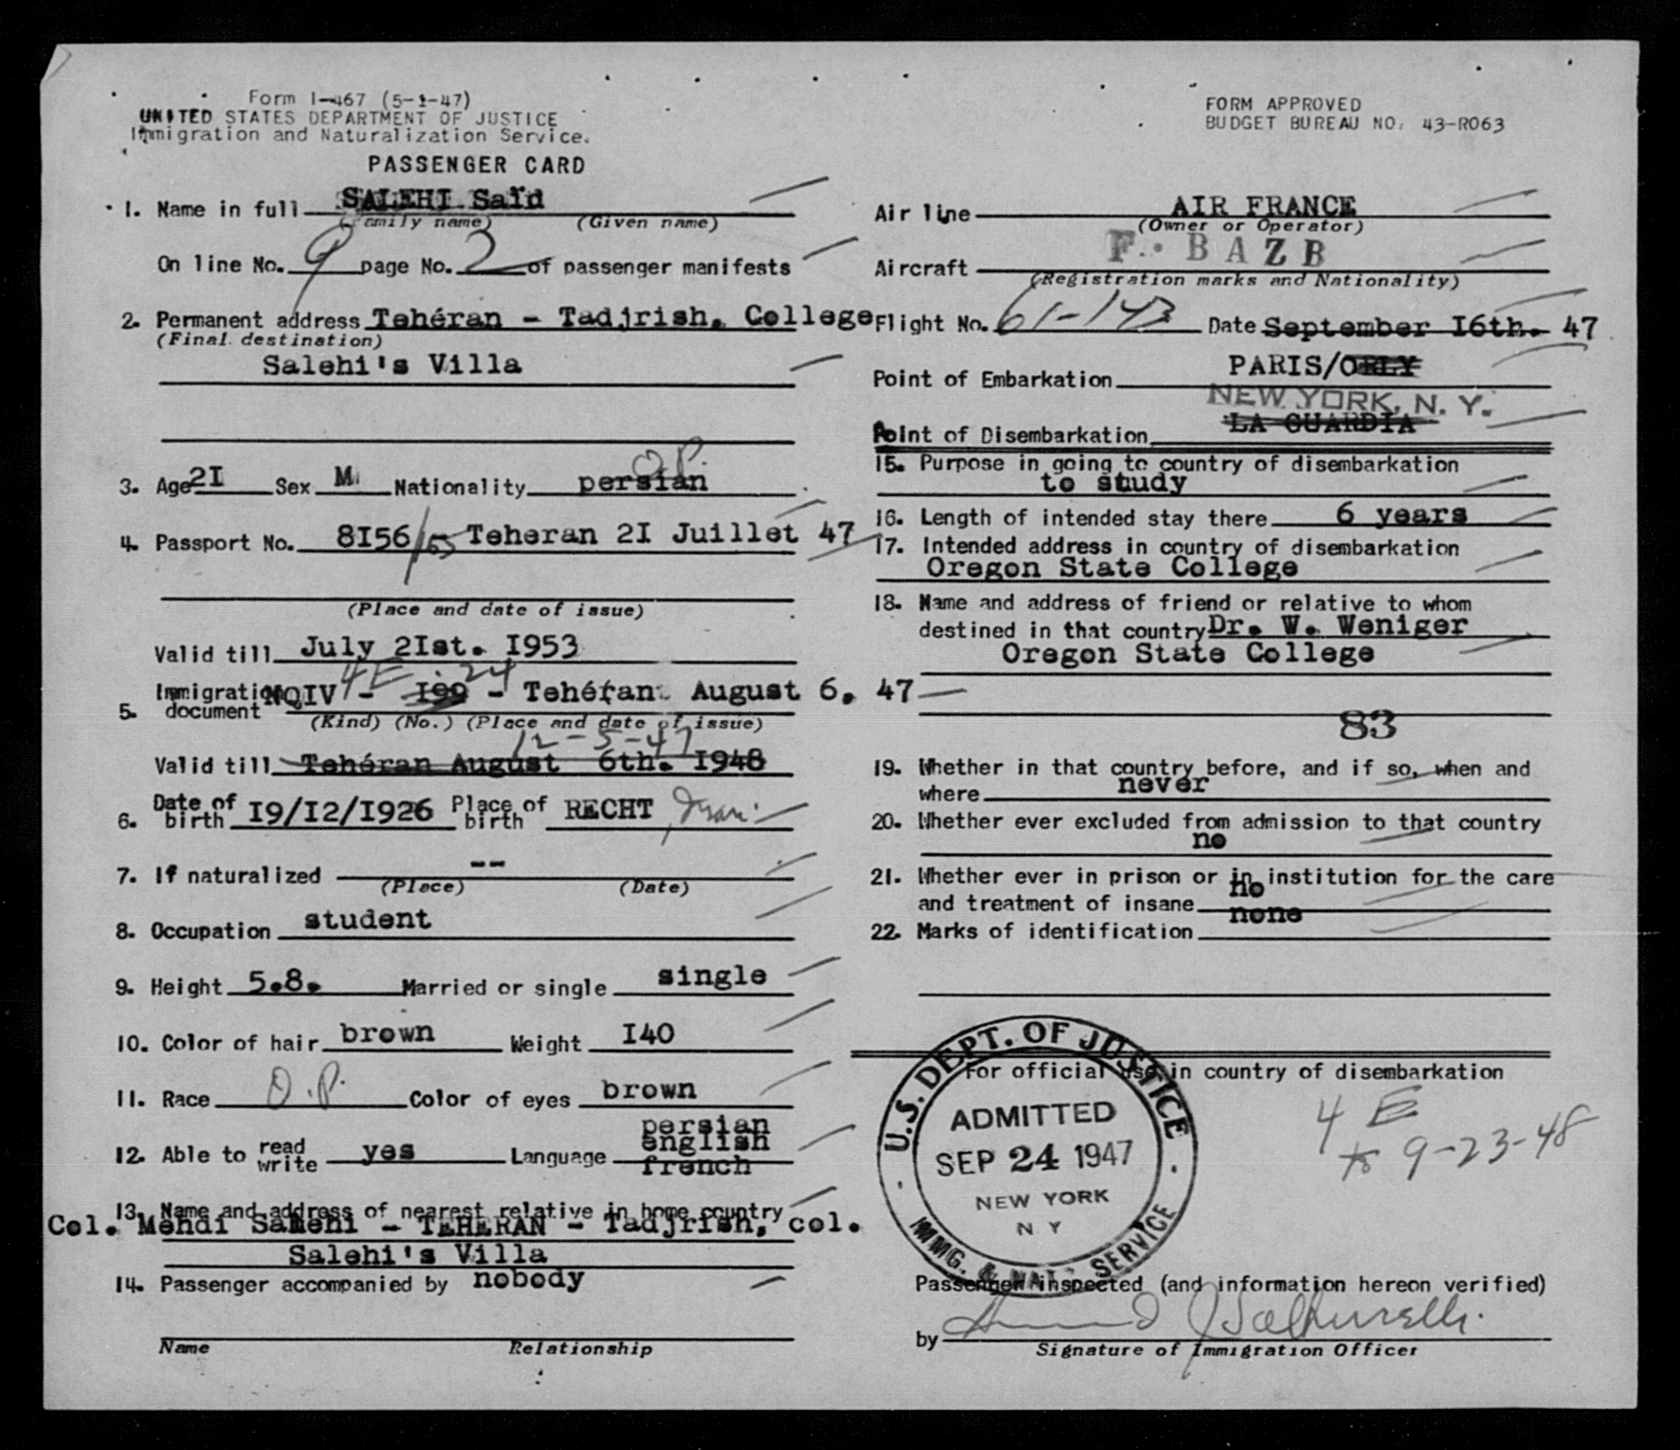 Form I-467 (5-1-47)
UNITED STATES DEPARTMENT OF JUSTICE
Immigration and Naturalization Service.
PASSENGER CARD
FORM APPROVED
BUDGET BUREAU NO. 43-R063
1. Name in full SALEHI Saïd
(Family name) (Given name)
On line No. 9 page No. 2 of passenger manifests
2. Permanent address Tehéran - Tadjrish. College
(Final destination)
Salehi's Villa
3. Age 2I Sex M Nationality persian O.P.
4. Passport No. 8I56/55 - Teheran 2I Juillet 47
(Place and date of issue)
Valid till July 2Ist. I953
4E 24
5. Immigration document NQIV - I99 - Tehéran August 6. 47
(Kind) (No.) (Place and date of issue)
12-5-47
Valid till Tehéran August 6th. I948
6. Date of birth I9/I2/I926 Place of birth RECHT, Iran
7. If naturalized --
(Place) (Date)
8. Occupation student
9. Height 5.8. Married or single single
10. Color of hair brown Weight I40
11. Race O.P. Color of eyes brown
12. Able to read write yes Language persian english french
13. Name and address of nearest relative in home country
Col. Mehdi Salehi - TEHERAN - Tadjrish, col.
Salehi's Villa
14. Passenger accompanied by nobody
Name Relationship
Air line AIR FRANCE
(Owner or Operator)
Aircraft F. BAZB
(Registration marks and Nationality)
Flight No. 61-143 Date September I6th. 47
Point of Embarkation PARIS/ORLY
NEW YORK, N. Y.
Point of Disembarkation LA GUARDIA
15. Purpose in going to country of disembarkation
to study
16. Length of intended stay there 6 years
17. Intended address in country of disembarkation
Oregon State College
18. Name and address of friend or relative to whom
destined in that country Dr. W. Weniger
Oregon State College
83
19. Whether in that country before, and if so, when and
where never
20. Whether ever excluded from admission to that country
no
21. Whether ever in prison or in institution for the care
and treatment of insane no
22. Marks of identification none
For official use in country of disembarkation
U.S. DEPT. OF JUSTICE
ADMITTED
SEP 24 1947
NEW YORK
N Y
IMMG. & NAT. SERVICE
4 E
to 9-23-48
Passenger inspected (and information hereon verified)
by
Signature of Immigration Officer